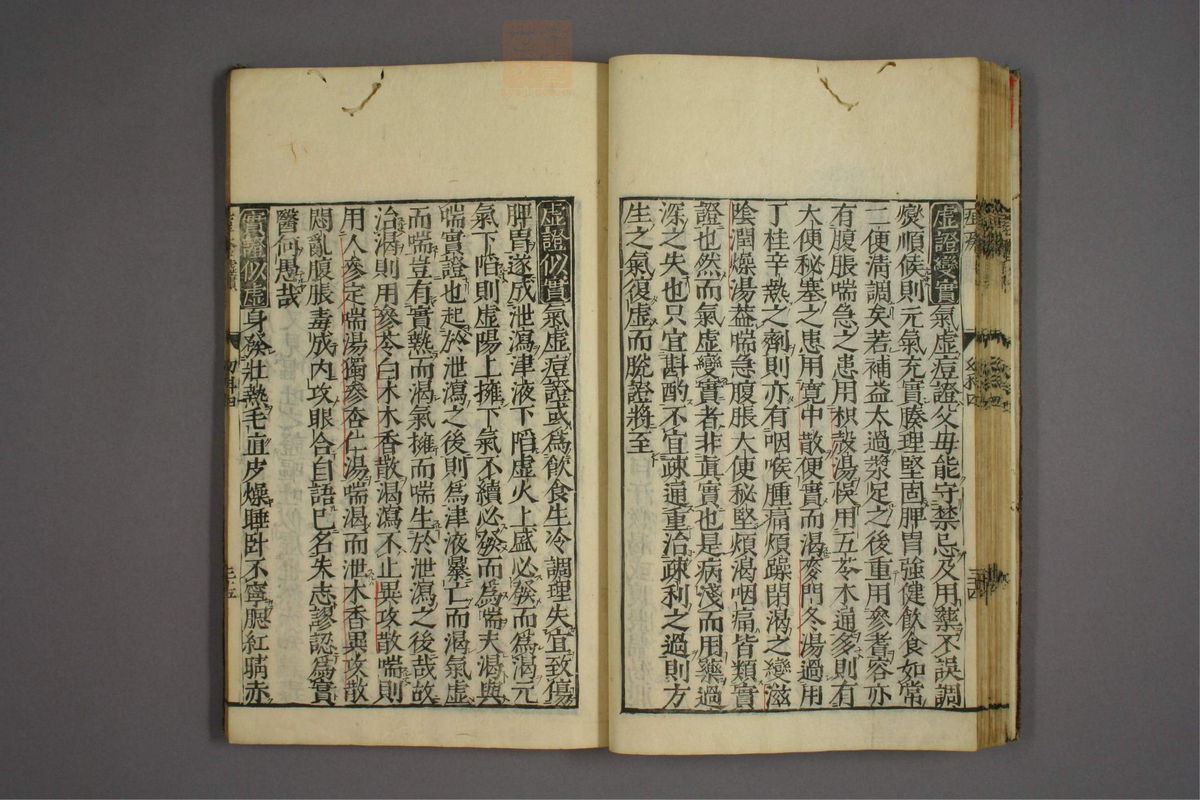 虛證變實氣虛痘證父母能守禁忌及用藥不誤調
燮順候則元氣充實腠理堅固脾胃強健飲食如常
二便清調矣若補益太過漿足之後重用參耆容亦
有腹脹喘急之患用枳殼湯誤用五苓木通多則有
大便秘塞之患用寬中散便實而渴麥門冬湯過用
丁桂辛熱之劑則亦有咽喉腫痛煩躁閉渴之變滋
陰潤燥湯葢喘急腹脹大便秘堅煩渴咽痛皆類實
證也然而氣虛變實者非眞實也是病淺而用藥過
深之失也只宜斟酌不宜疎通重治疎利之過則方
生之氣復虛而脫證將至
虛證似實氣虛痘證或爲飲食生冷調理失宜致傷
脾胃遂成泄瀉津液下陷虛火上盛必發而爲渴元
氣下陷則虛陽上擁下氣不續必發而爲喘夫渴與
喘實證也起於泄瀉之後則爲津液暴亡而渴氣虛
而喘豈有實熱而渴氣擁而喘生於泄瀉之後哉故
治渴則用參苓白朮木香散渴瀉不止異攻散喘則
用人參定喘湯獨參杏仁湯喘渴而泄木香異攻散
悶亂腹脹毒成內攻眼合自語已名朱志謬認爲實
醫何愚哉
實證似虛身發壯熱毛直皮燥睡臥不寧腮紅睛赤
幼科四
三十四
幼科四
三十五